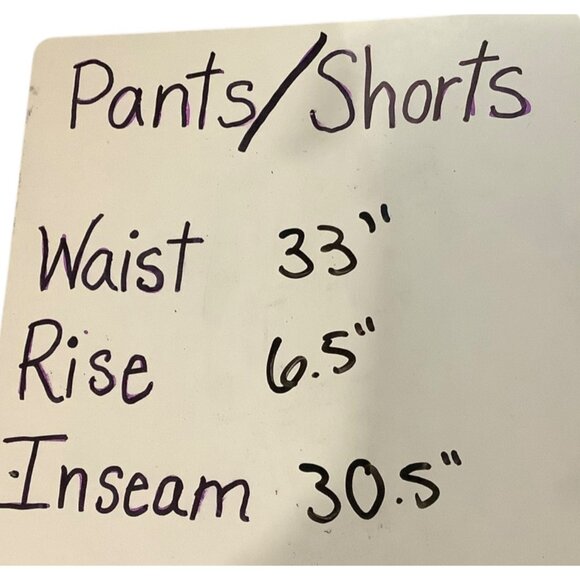 Pants/Shorts
Waist 33"
Rise 6.5"
Inseam 30.5"